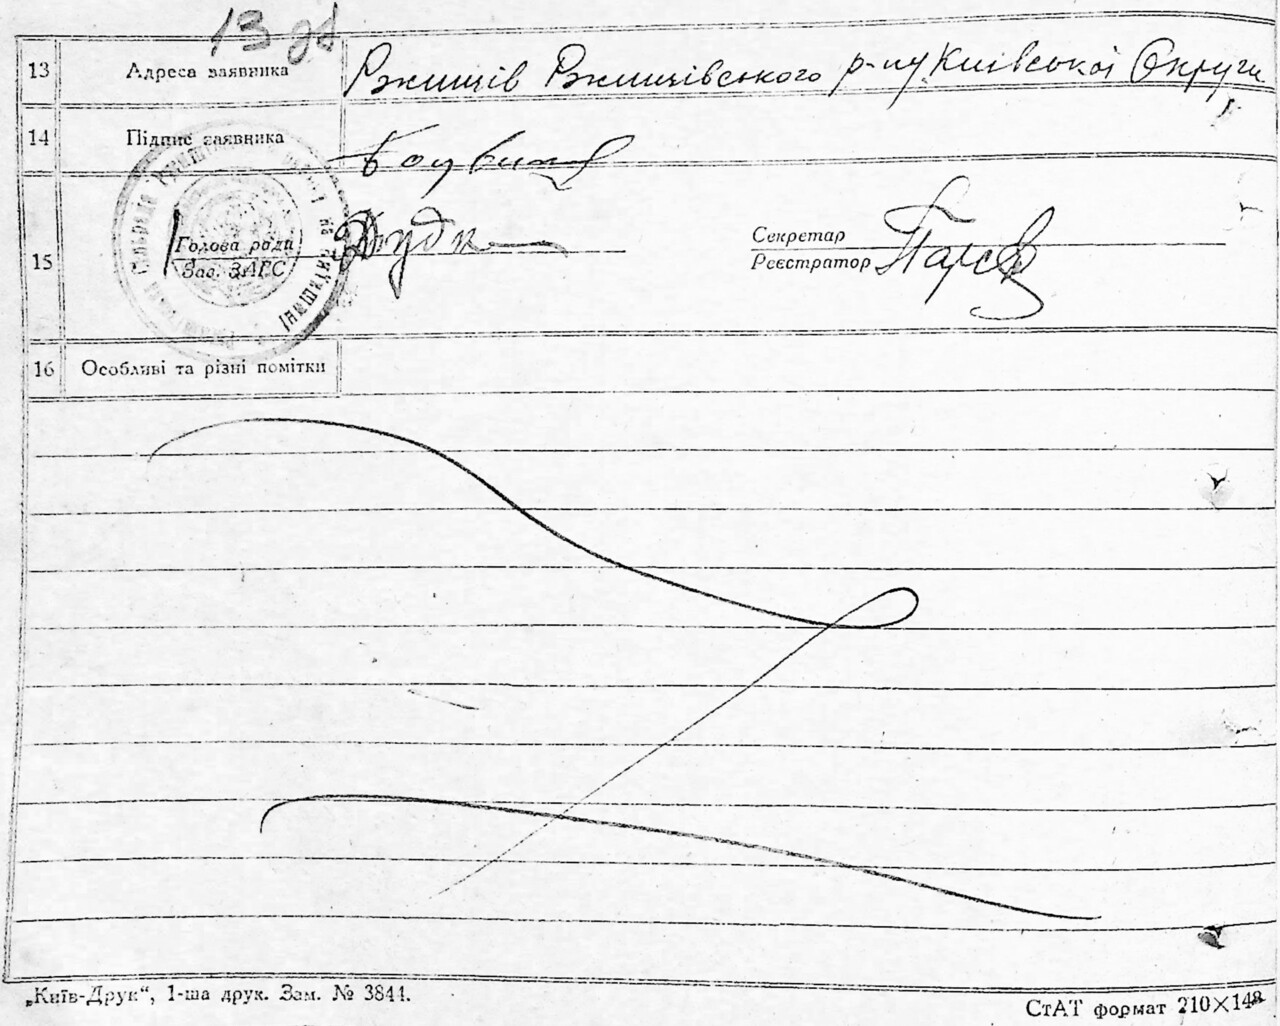 13 зв
13 Адреса заявника Ржищів Ржищівського р-ну Київської Округи
14 Підпис заявника
15 Голова ради Дудко Секретар
Зав. ЗАГС Реєстратор
16 Особливі та різні помітки
„Київ-Друк“, 1-ша друк. Зам. № 3844.
СтАТ формат 210×148